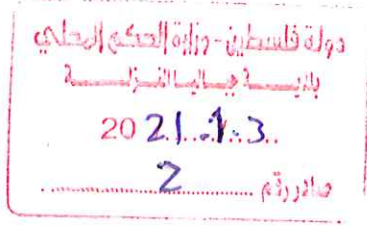 دولة فلسطين - وزارة الحكم المحلي
بلديــــة جباليا النـزلــــة
20 21..1..3..
صادر رقم ........ 2 ........